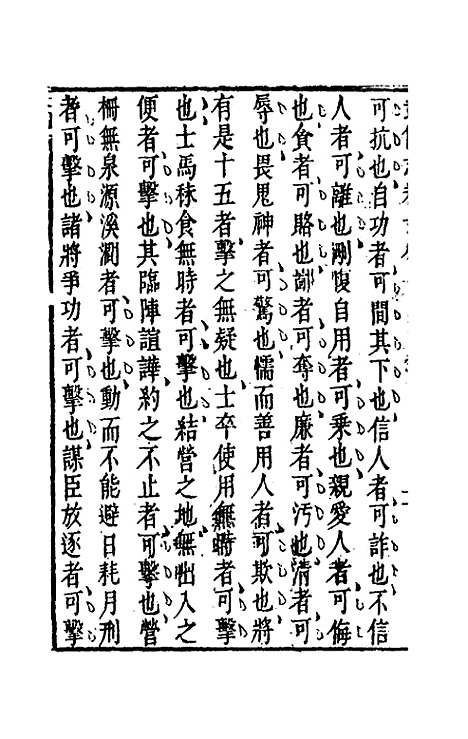 可抗也自功者可間其下也信人者可詐也不信
人者可離也剛愎自用者可乘也親愛人者可侮
也貪者可賂也鄙者可奪也廉者可汚也清者可
辱也畏鬼神者可驚也懦而善用人者可欺也將
有是十五者擊之無疑也士卒使用無時者可擊
也士馬秣食無時者可擊也結營之地無出入之
便者可擊也其臨陣諠譁約之不止者可擊也營
柵無泉源溪澗者可擊也動而不能避日耗月刑
者可擊也諸將爭功者可擊也謀臣放逐者可擊